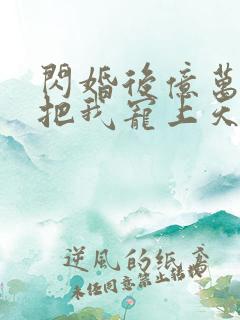 閃婚後億萬
把我寵上天
逆風的紙鳶
未經同意禁止轉載